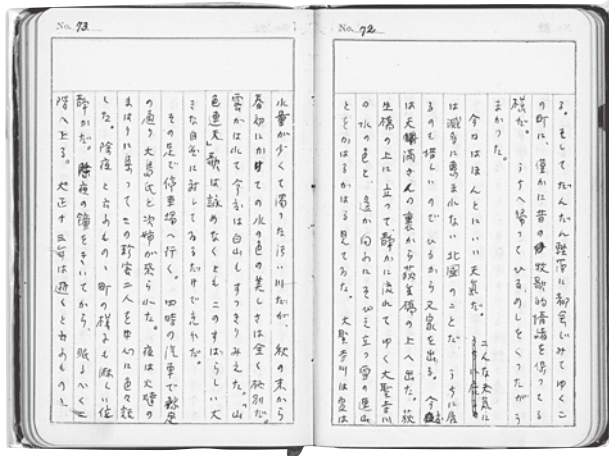 No. 72
る。そしてだんだん堅実に都会じみてゆくこ
の町に、僅かに昔の牧歌的情緒を保つてゐる
様だ。 うちへ帰つてひるめしをくつたがう
まかつた。
今日はほんとにいい天気だ。 こんな天気に
は滅多に恵まれない北国のことだ。うちに居
るのも惜しいのでひるから又家を出る。今
は天満さんの裏から萩生橋の上へ出た。萩
生橋の上に立つて、静かに流れてゆく大聖寺川
の水の色と、遥か向ふにそびえ立つ雪の連山
とをかはるがはる見てゐた。 大聖寺川は夏は
No. 73
水量が少くて濁つた汚い川だが、秋の末から
春初にかけての水の色の美しさは全く格別だ。
雲かはれて今日は白山もすつきりみえた。「山
色連天」歌は詠めなくともこのすばらしい大
きな自然に対してゐるだけで充分だ。
その足で停車場へ行く。 四時の汽車で
の通り大島氏と次姉が来られた。夜は火燵の
まはりに集つてこの珍客二人を中心に色々話
した。 除夜と云ふものゝ町の様子も淋しい位
静かだ。除夜の鐘をきいてから、眠るべく二
階へ上る。 大正十三年は逝くと云ふものを